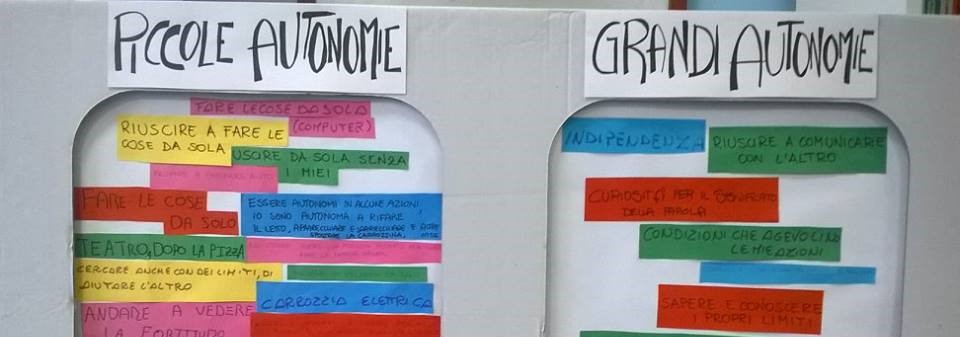 PICCOLE AUTONOMIE
FARE LE COSE DA SOLA
(COMPUTER)
RIUSCIRE A FARE LE
COSE DA SOLA
USCIRE DA SOLA SENZA
I MIEI
FARE LE COSE
DA SOLO
ESSERE AUTONOMI IN ALCUNE AZIONI,
IO SONO AUTONOMA A RIFARE
IL LETTO, APPARECCHIARE E SPARECCHIARE E
SPOSTARE LA CARROZZINA,
TEATRO, DOPO LA PIZZA
CERCARE ANCHE CON DEI LIMITI, DI
AIUTARE L'ALTRO
CARROZZIA ELETTRICA
ANDARE A VEDERE
LA FORTITUDO
GRANDI AUTONOMIE
INDIPENDENZA
RIUSCIRE A COMUNICARE
CON L'ALTRO
CURIOSITÀ PER IL SIGNIFICATO
DELLA PAROLA
CONDIZIONI CHE AGEVOLINO
LE MIE AZIONI
SAPERE E CONOSCERE
I PROPRI LIMITI